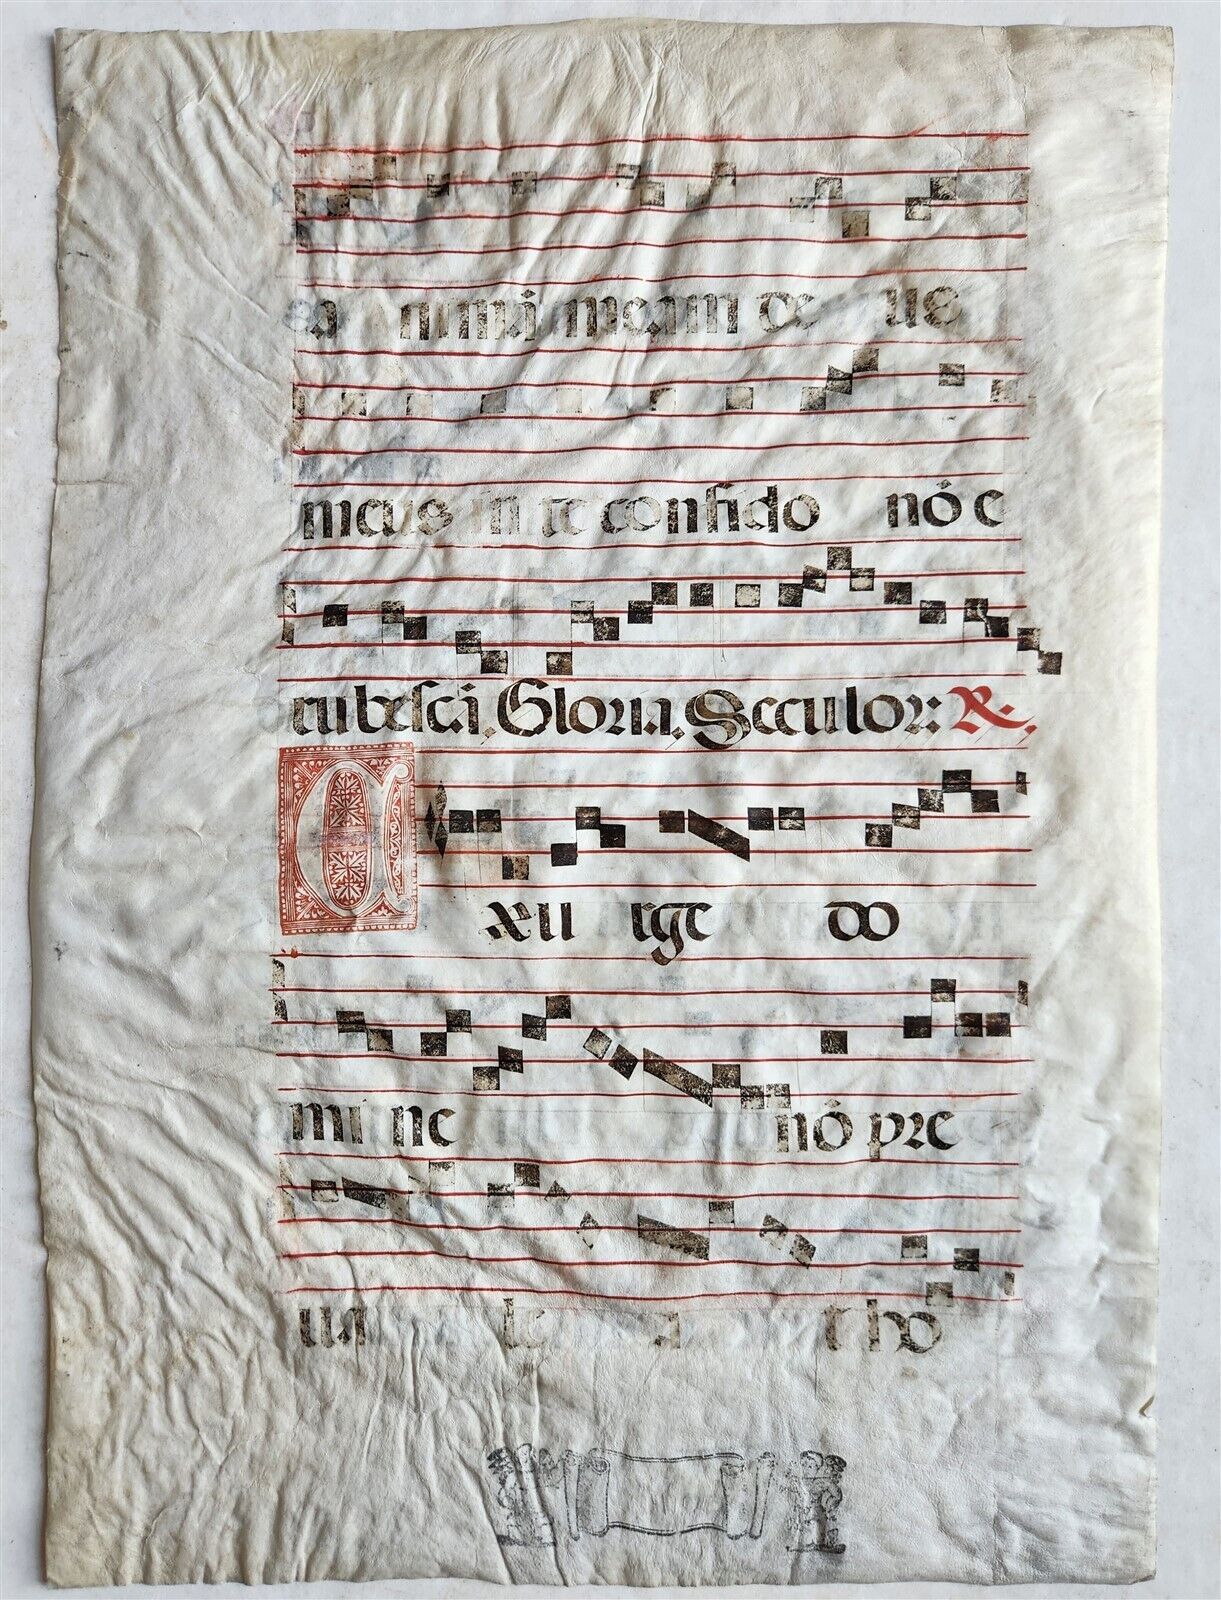 a nimā meam de us
meus in te confido nō e
rubescā. Gloria. Seculor: R.
E xu rge do
mi ne nō pre
ua le a t ho